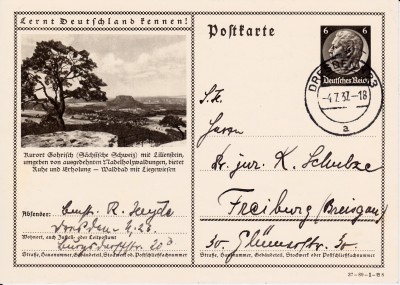 Lernt Deutschland kennen!
Kurort Gohrisch (Sächsische Schweiz) mit Lilienstein,
umgeben von ausgedehnten Nadelholzwaldungen, bietet
Ruhe und Erholung – Waldbad mit Liegewiesen
Absender:
R. Heyde
Dresden
Wohnort, auch Zustell- oder Leitpostamt
Straße, Hausnummer, Gebäudeteil, Stockwerk od. Postschließfachnummer
Postkarte
6 6
Deutsches Reich
DRESDEN
-4.7.37.-18
a
Herrn
Dr. jur. K. Schulze
Freiburg (Breisgau)
30
Straße, Hausnummer, Gebäudeteil, Stockwerk od. Postschließfachnummer